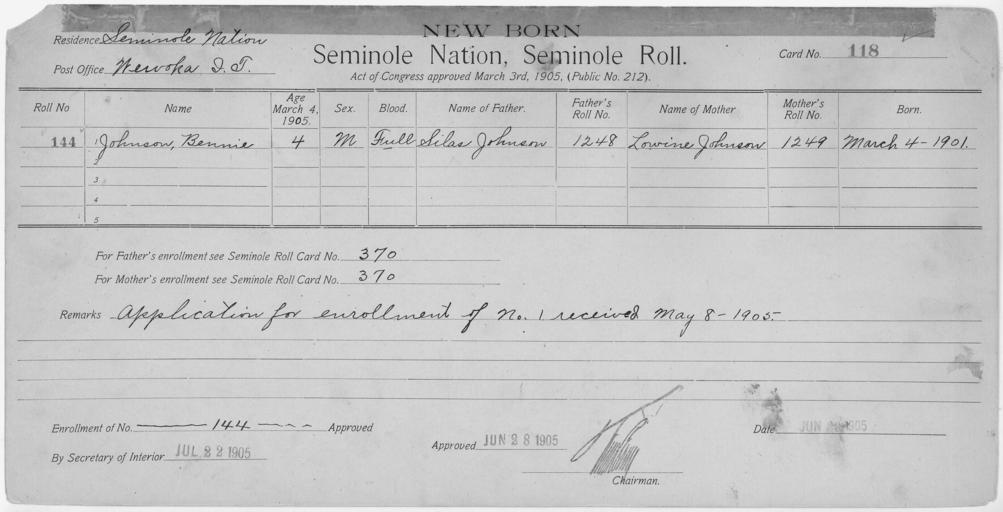 NEW BORN
Residence Seminole Nation
Seminole Nation, Seminole Roll.
Card No. 118
Post Office Wewoka I. T.
Act of Congress approved March 3rd, 1905, (Public No. 212).
Roll No Name Age March 4, 1905. Sex. Blood. Name of Father. Father's Roll No. Name of Mother Mother's Roll No. Born.
144 1 Johnson, Bennie 4 M Full Silas Johnson 1248 Lowine Johnson 1249 March 4-1901.
2
3
4
5
For Father's enrollment see Seminole Roll Card No. 370
For Mother's enrollment see Seminole Roll Card No. 370
Remarks Application for enrollment of No. 1 received May 8-1905.
Enrollment of No. 144 Approved
By Secretary of Interior JUL 22 1905
Approved JUN 28 1905
Date JUN 1905
Chairman.